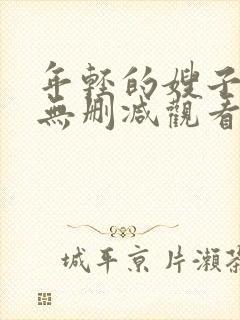 年輕的嫂子
無刪減觀看
城平京 片瀨茶